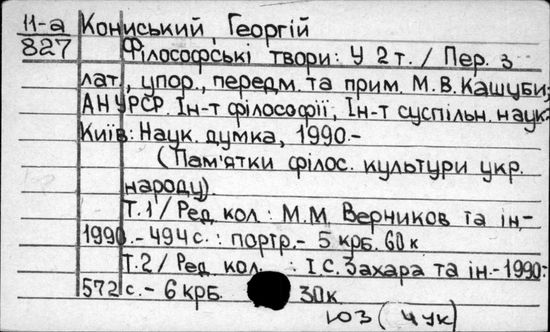 11-а Кониський, Георгій
827 Філософські твори: У 2 т. / Пер. з
лат., упор., передм. та прим. М.В. Кашуби;
АН УРСР. Ін-т філософії, Ін-т суспільн. наук.-
Київ: Наук. думка, 1990.-
(Пам'ятки філос. культури укр.
народу).
Т.1/ Ред кол.: М.М. Верников та ін,-
1990.- 494 с.: портр.- 5 крб. 60 к
Т.2/ Ред. кол. : І.С. Захара та ін.- 1990.-
572 с.- 6 крб. 30к
ЮЗ (ЧУК)